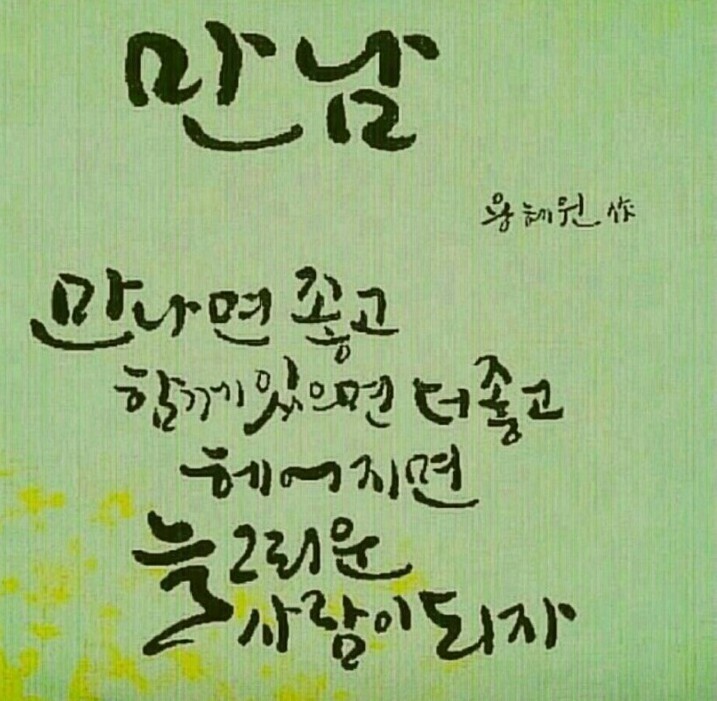 만남
용혜원 作
만나면 좋고
함께 있으면 더 좋고
헤어지면
늘 그리운
사람이 되자